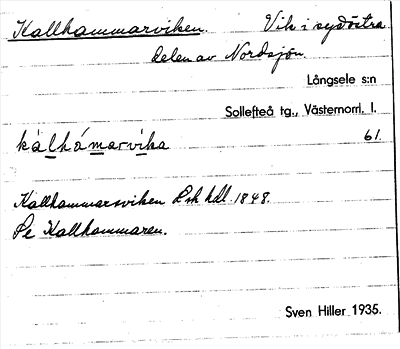 Kallhammarviken. Vik i sydöstra
delen av Nordsjön.
Långsele s:n
Sollefteå tg., Västernorrl. l.
kálhámarvika 61.
Kallhammarsviken Lsk hdl. 1848.
Se Kallhammaren.
Sven Hiller 1935.